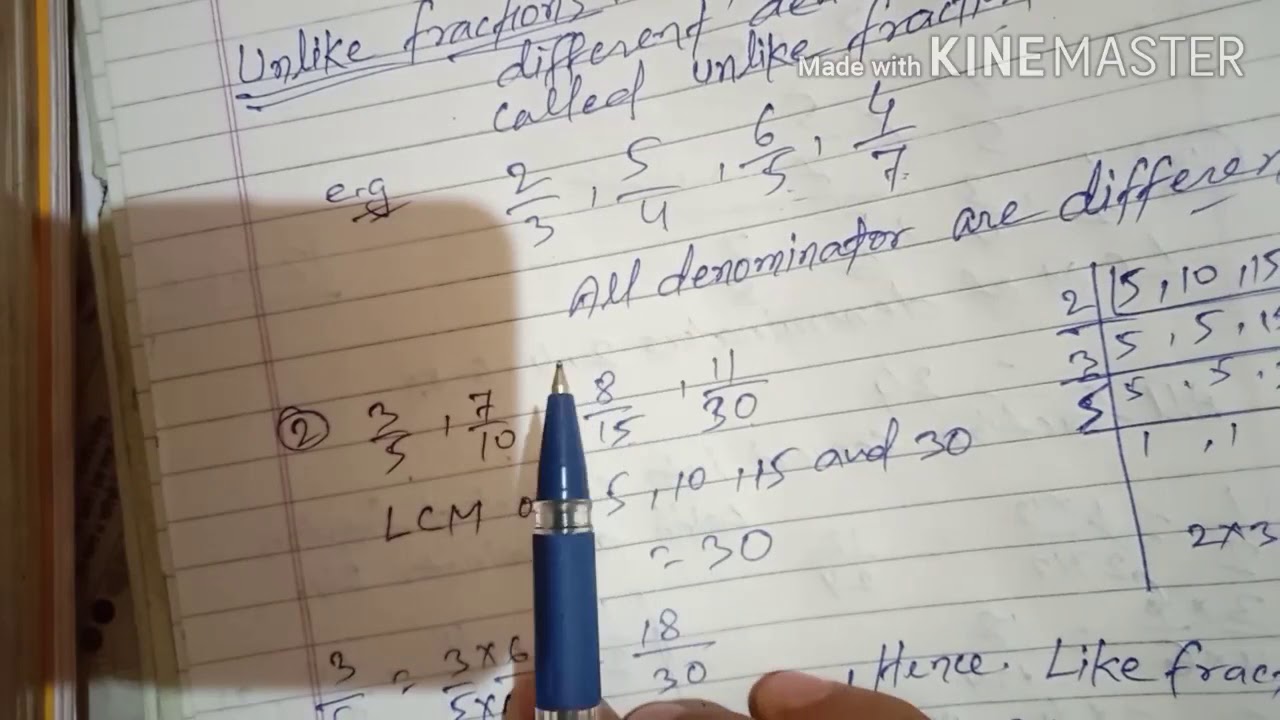 Unlike fractions
different
called unlike
Made with KINEMASTER
e.g 2/3, 5/4, 6/5, 4/7
All denominator are
② 3/5, 7/10 8/15, 11/30
LCM 5, 10, 15 and 30
= 30
2 | 5, 10, 15
3 | 5, 5,
5 | 5, 5,
1, 1
2×3
3 = 3×6 18/30
, Hence. Like